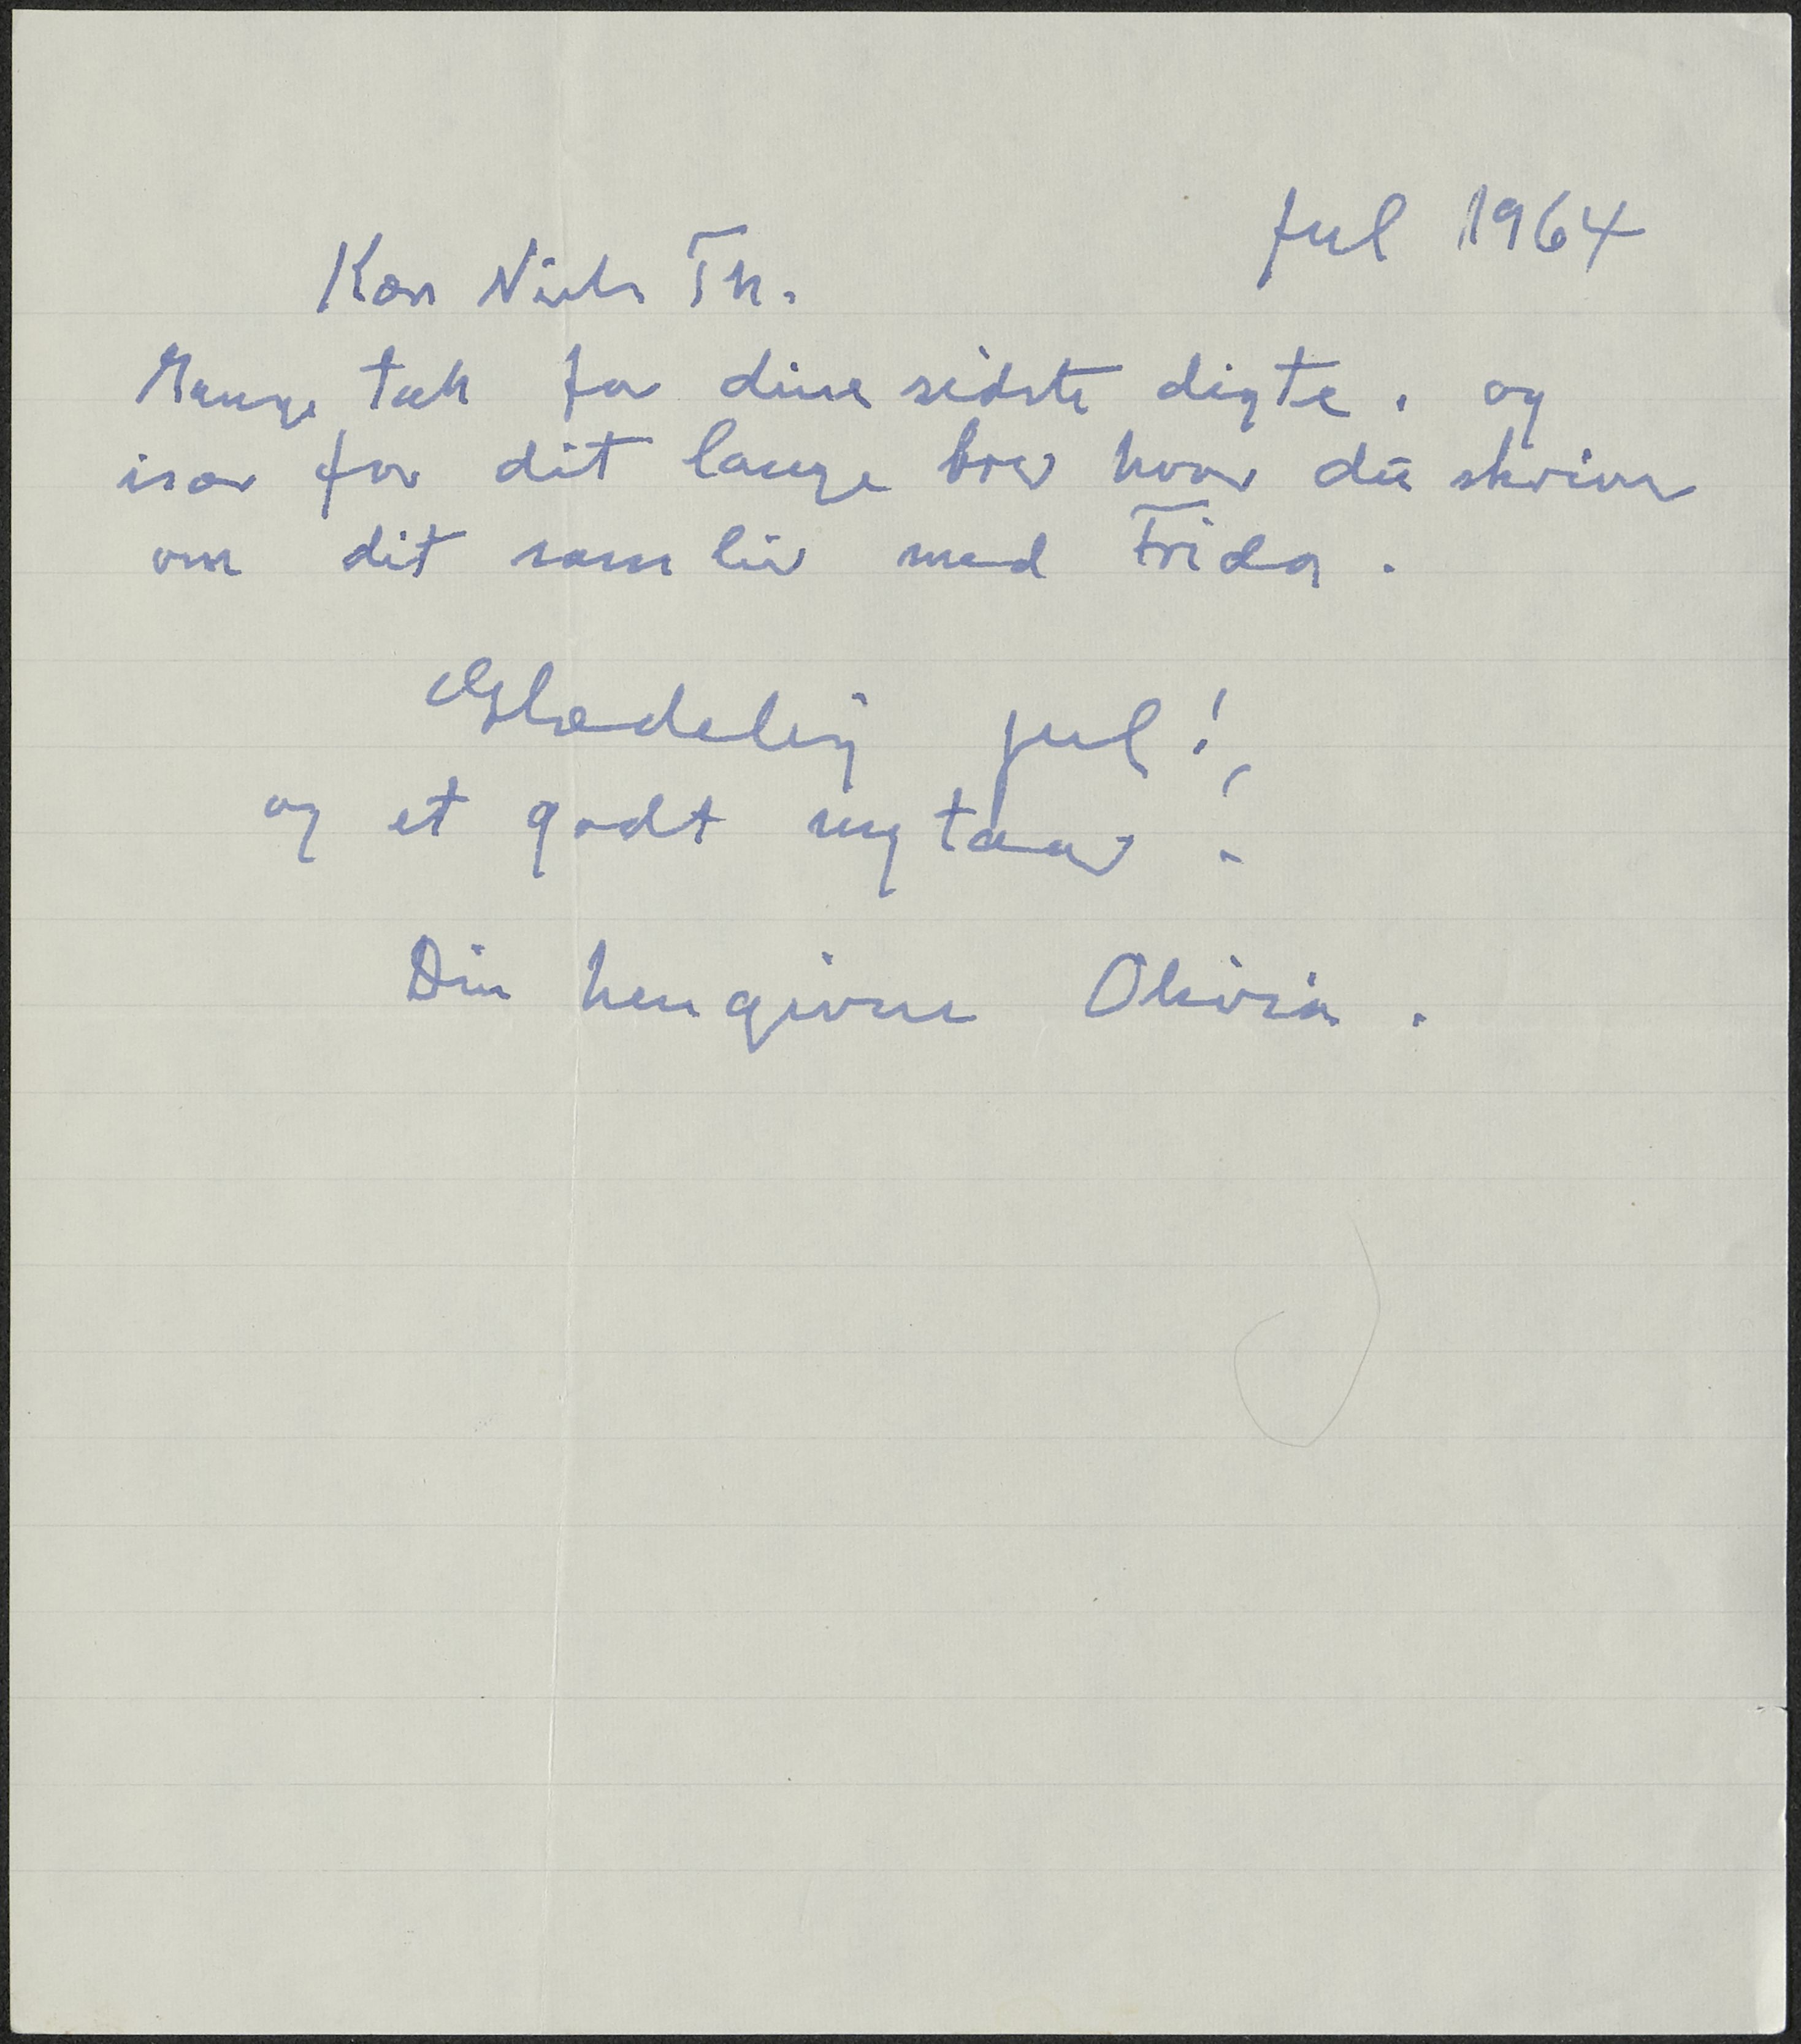 Jul 1964
Kære Niels Th.
Mange tak for dine sidste digte. og
især for dit lange brev hvor du skriver
om dit samliv med Frida.
Glædelig jul!
og et godt nytaar!
Din hengivne Olivia.